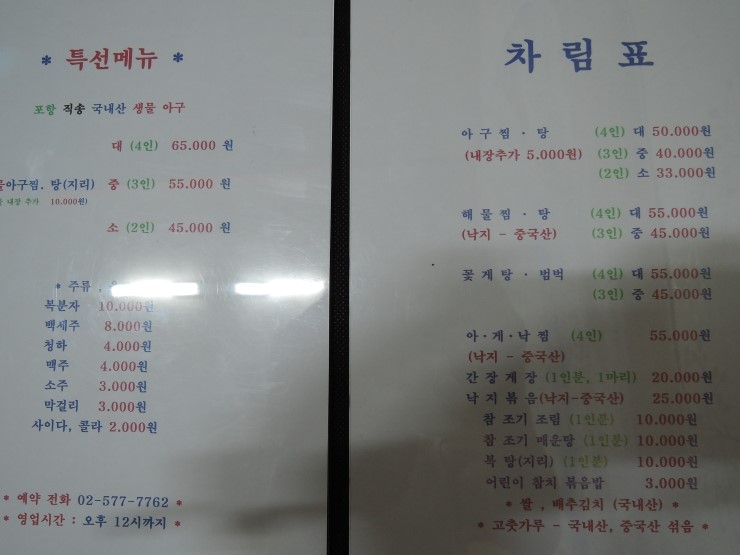 * 특선메뉴 *
포항 직송 국내산 생물 아구
대 (4인) 65.000 원
아구찜. 탕(지리) 중 (3인) 55.000 원
내장 추가 10.000원)
소 (2인) 45.000 원
* 주류 .
복분자 10.000원
백세주 8.000원
청하 4.000원
맥주 4.000원
소주 3.000원
막걸리 3.000원
사이다, 콜라 2.000원
* 예약 전화 02-577-7762 *
* 영업시간 : 오후 12시까지 *
차 림 표
아 구 찜 · 탕 (4인) 대 50.000원
(내장추가 5.000원) (3인) 중 40.000원
(2인) 소 33.000원
해 물 찜 · 탕 (4인) 대 55.000원
(낙지 - 중국산) (3인) 중 45.000원
꽃 게 탕 · 범벅 (4인) 대 55.000원
(3인) 중 45.000원
아 · 게 · 낙 찜 (4인) 55.000원
(낙지 - 중국산)
간 장 게 장 (1인분, 1마리) 20.000원
낙 지 볶 음(낙지-중국산) 25.000원
참 조기 조림 (1인분) 10.000원
참 조기 매운탕 (1인분) 10.000원
복 탕(지리) (1인분) 10.000원
어린이 참치 볶음밥 3.000원
* 쌀 , 배추김치 (국내산) *
* 고춧가루 - 국내산, 중국산 섞음 *